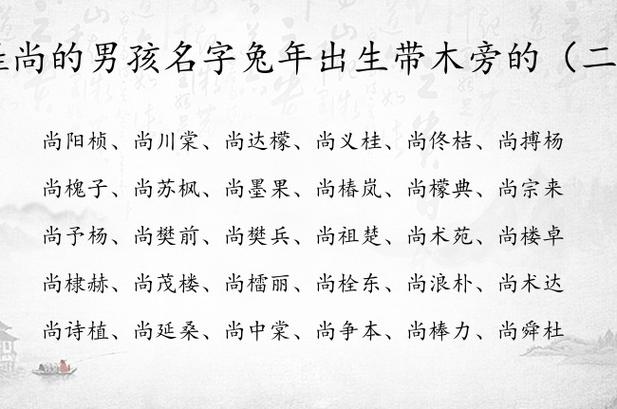 尚的男孩名字兔年出生带木旁的（二
尚阳桢、尚川棠、尚达檬、尚义桂、尚佟桔、尚搏杨
尚槐子、尚苏枫、尚墨果、尚椿岚、尚檬典、尚宗来
尚予杨、尚樊前、尚樊兵、尚祖楚、尚术苑、尚楼卓
尚棣赫、尚茂楼、尚檑丽、尚栓东、尚浪朴、尚术达
尚诗植、尚延桑、尚中棠、尚争本、尚棒力、尚舜杜